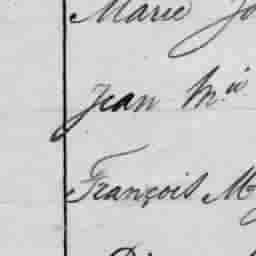 Marie Jo
Jean M.ie
François M